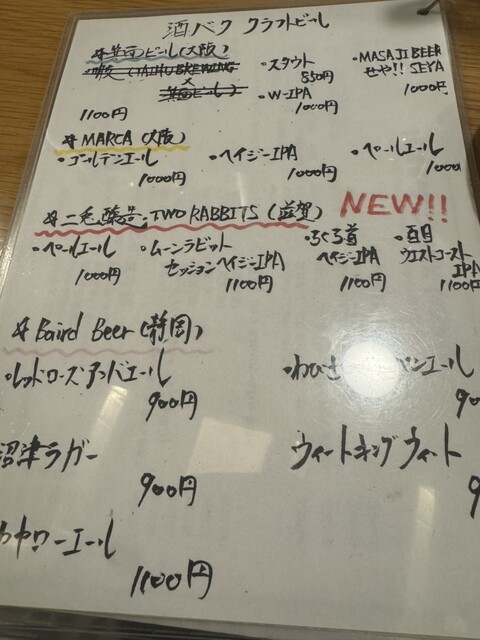 酒バク クラフトビール
☆箕面ビール(大阪)
(TAIHU BREWING
×
箕面ビール)
1100円
・スタウト
850円
・W-IPA
1000円
・MASAJI BEER
せや!! SEYA
1000円
☆ MARCA (大阪)
・ゴールデンエール
1000円
・ヘイジーIPA
1000円
・ペールエール
1000
☆二兎醸造 TWO RABBITS (滋賀) NEW!!
・ペールエール
1000円
・ムーンラビット
セッションヘイジーIPA
1100円
・ちくち道
ヘイジーIPA
1100円
ウエストコースト
IPA
1100円
☆ Baird Beer (静岡)
・レッドローズアンバエール
900円
・わびさ
パンエール
90
沼津ラガー
900円
ウィートキングウィート
9
ーエール
1100円